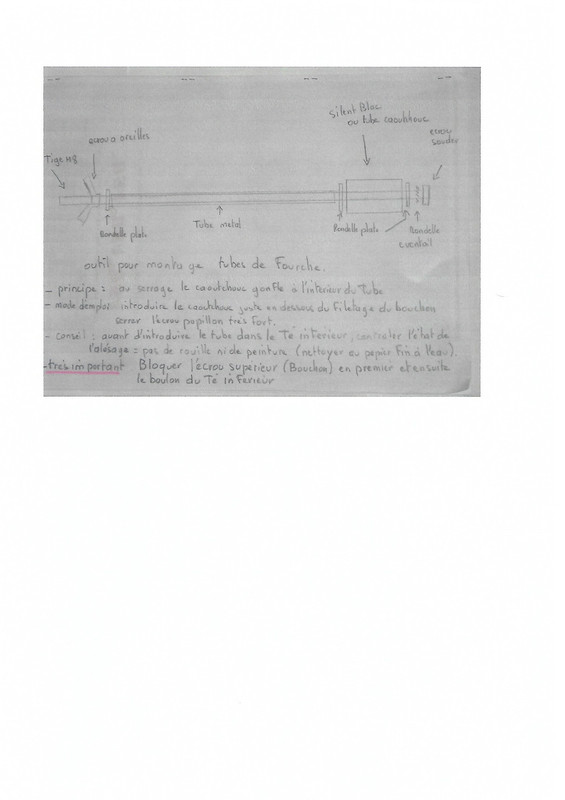 Silent Bloc
ou tube caoutchouc
ecrou
souder
ecrou a oreilles
Tige M8
Rondelle plate
Tube metal
Rondelle plate
Rondelle
eventail
outil pour montage tubes de Fourche.
- principe : au serrage le caoutchouc gonfle à l'interieur du Tube
- mode d'emploi introduire le caoutchouc juste en dessous du Filetage du bouchon
serrer l'écrou papillon très fort.
- conseil : avant d'introduire le tube dans le Té inferieur, controler l'état de
l'alésage = pas de rouille ni de peinture (nettoyer au papier Fin à l'eau).
- très important Bloquer l'écrou superieur (Bouchon) en premier et ensuite
le boulon du Té inFerieur